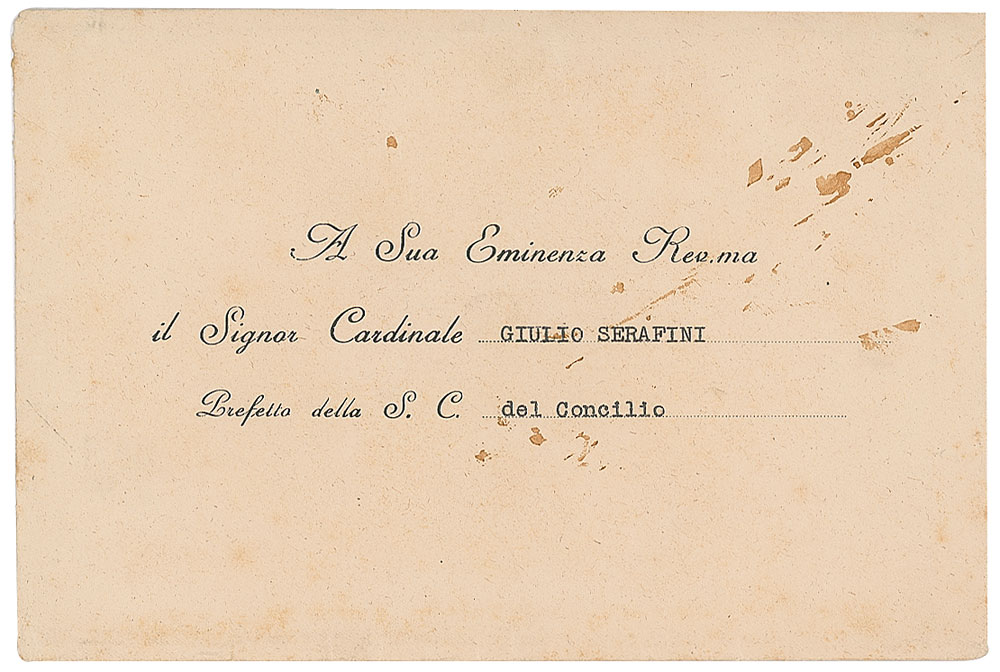 A Sua Eminenza Rev.ma
il Signor Cardinale GIULIO SERAFINI
Prefetto della S. C. del Concilio